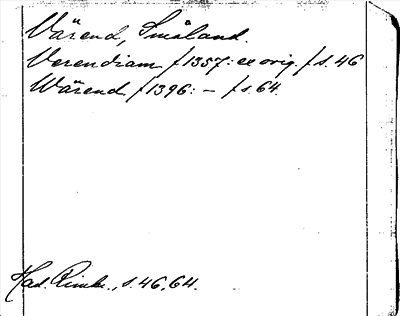 Värend, Småland.
Verendiam /1357: ex orig./ s. 46
Wärend /1396: - / s. 64.
Had. Rimbe., s. 46, 64.